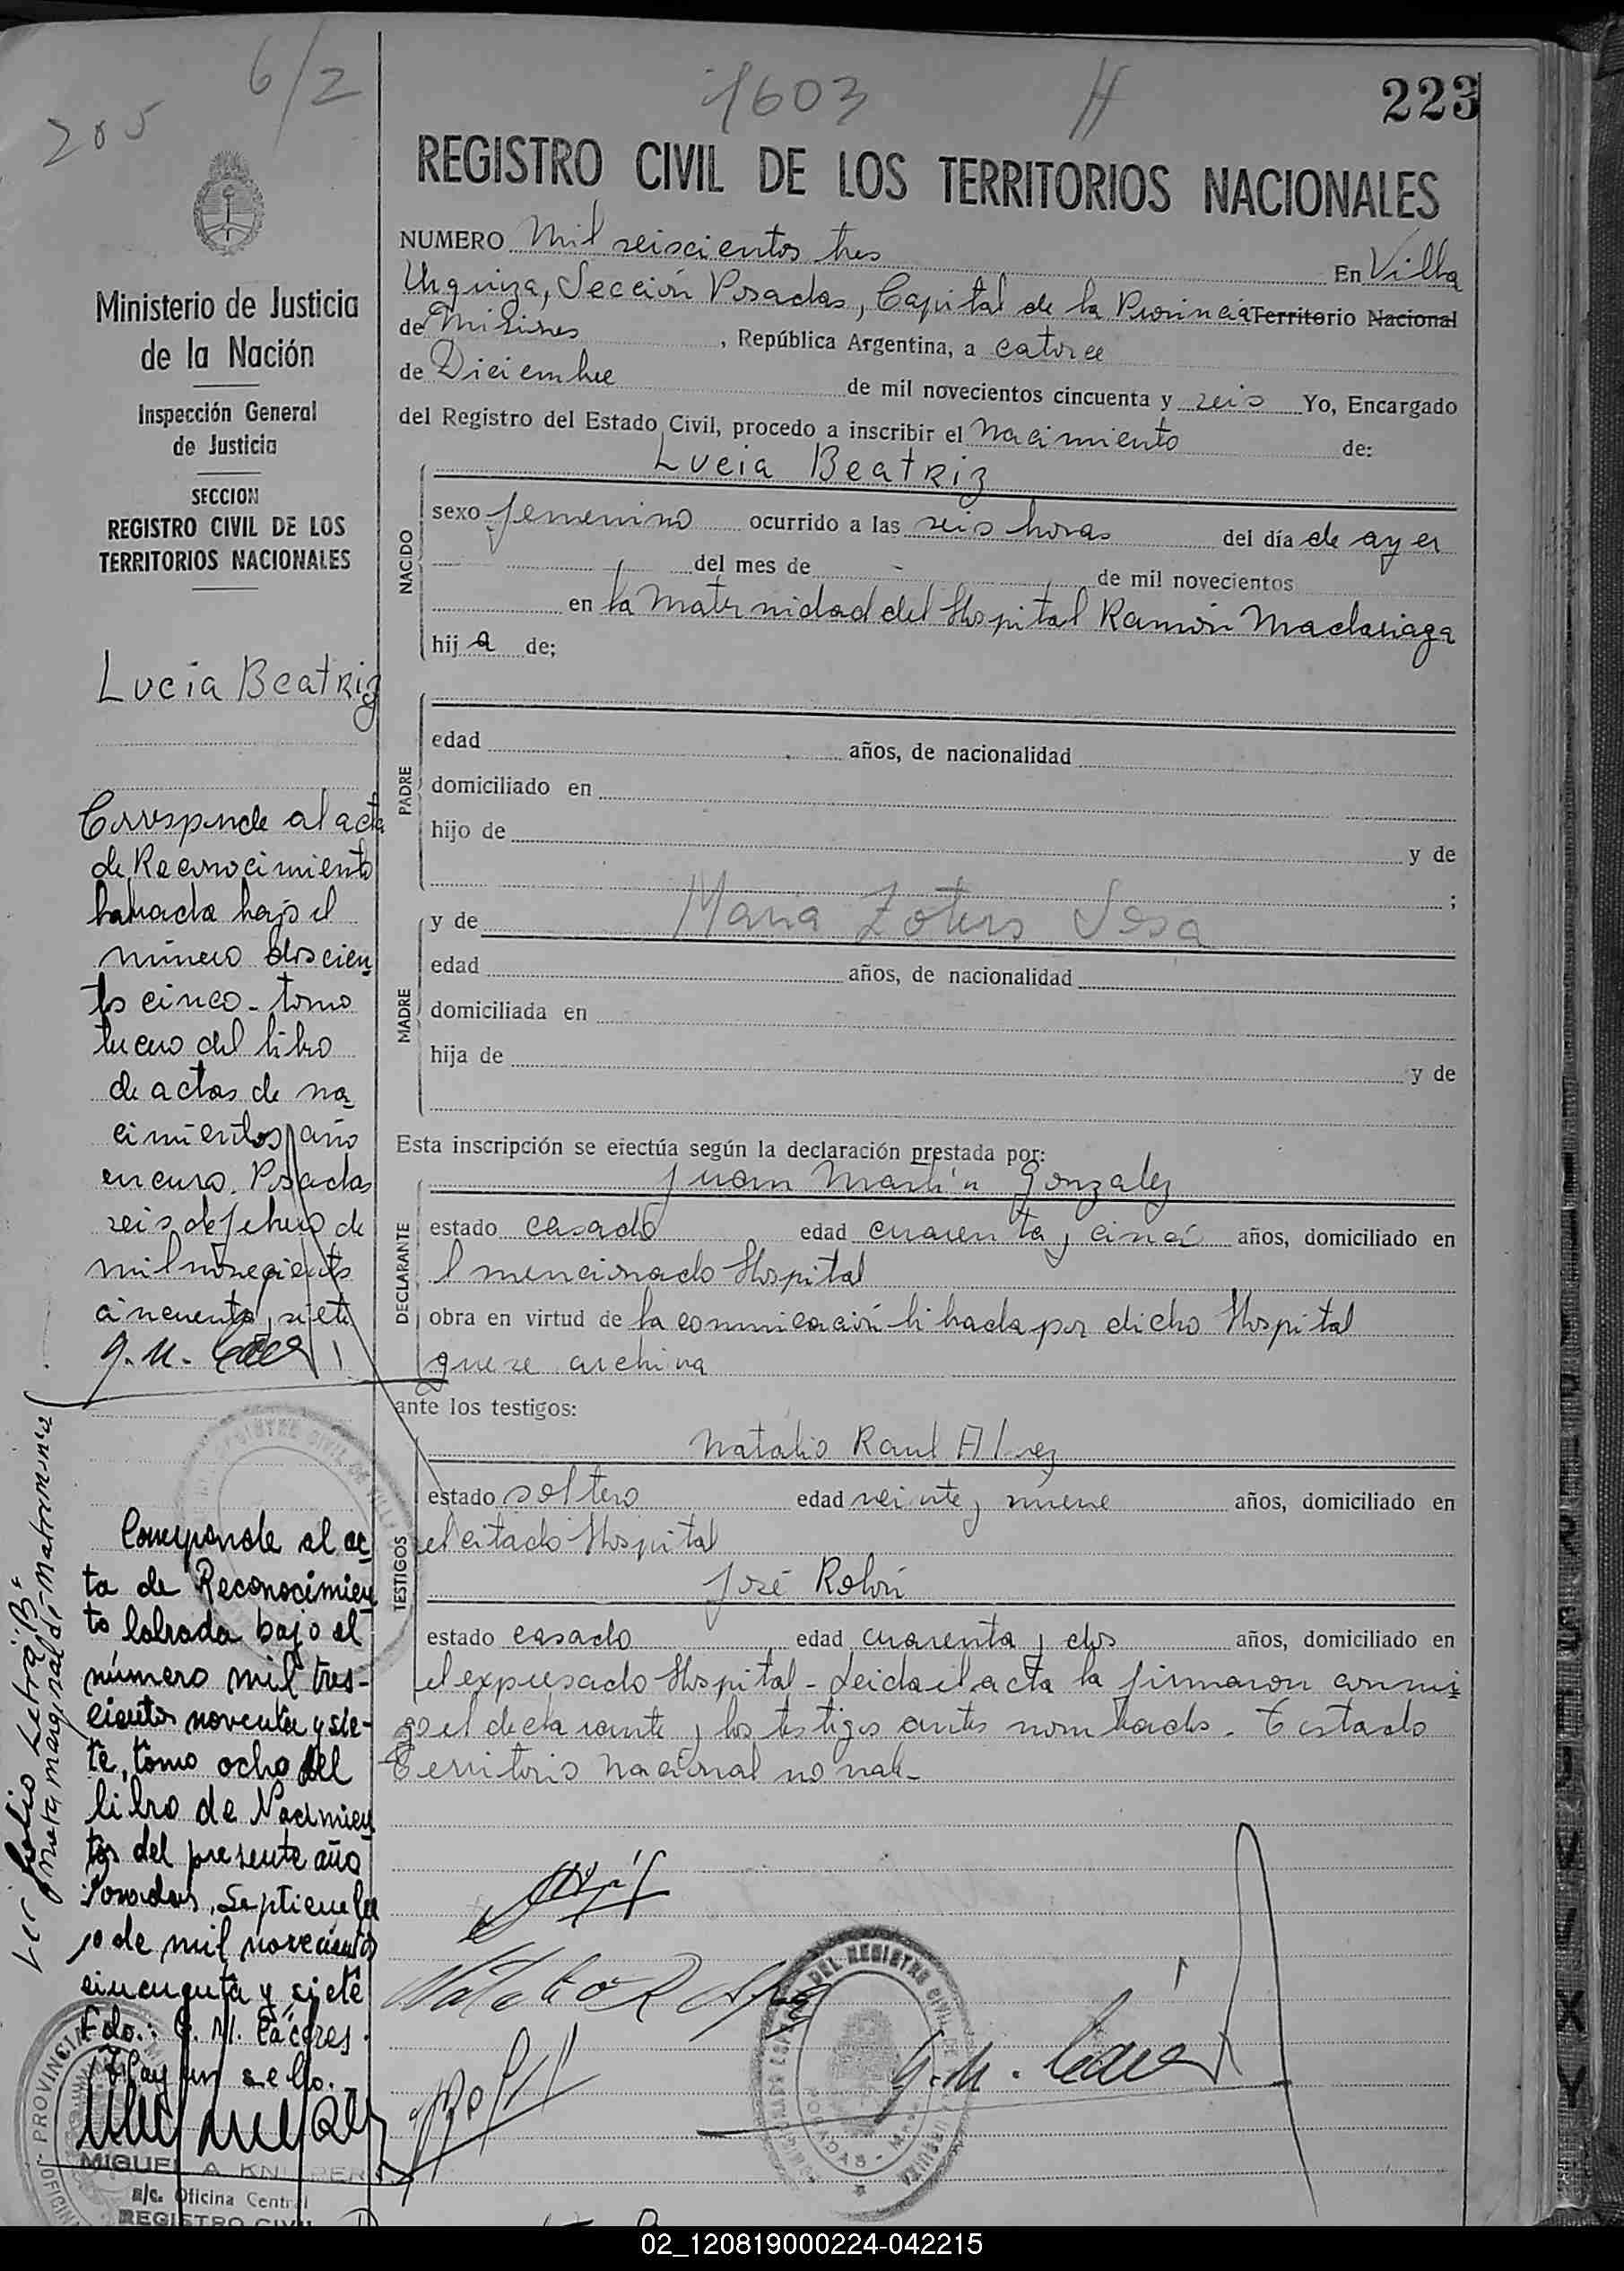 6/2
205
1603
H
223
REGISTRO CIVIL DE LOS TERRITORIOS NACIONALES
NUMERO Mil seiscientos tres En Villa
Urquiza, Sección Posadas, Capital de la Provincia Territorio Nacional
de Misiones, República Argentina, a catorce
de Diciembre de mil novecientos cincuenta y seis Yo, Encargado
del Registro del Estado Civil, procedo a inscribir el nacimiento de:
Lucia Beatriz
NACIDO
sexo femenino ocurrido a las seis horas del día de ayer
del mes de - de mil novecientos
en la Maternidad del Hospital Ramón Madariaga
hij a de;
PADRE
edad años, de nacionalidad
domiciliado en
hijo de y de
;
MADRE
y de Maria Sosa
edad años, de nacionalidad
domiciliada en
hija de y de
Esta inscripción se efectúa según la declaración prestada por:
Juan Martín Gonzalez
DECLARANTE
estado casado edad cuarenta y cinco años, domiciliado en
l mencionado Hospital
obra en virtud de la comunicación librada por dicho Hospital
que se archiva
ante los testigos:
Natalio Raul Alvez
TESTIGOS
estado soltero edad veinte y nueve años, domiciliado en
el citado Hospital
José Rolón
estado casado edad cuarenta y dos años, domiciliado en
el expresado Hospital - Leida el acta la firmaron conmi
go el declarante y los testigos antes nombrados. Testado
Territorio Nacional no vale-
G. M. Cáceres
Ministerio de Justicia
de la Nación
Inspección General
de Justicia
SECCION
REGISTRO CIVIL DE LOS
TERRITORIOS NACIONALES
Lucia Beatriz
Corresponde al acta
de Reconocimiento
labrada bajo el
número doscien
tos cinco - tomo
tercero del libro
de actas de na
cimientos año
en curso. Posadas
seis de febrero de
mil novecientos
cincuenta y siete
G. M. Cáceres
Corresponde al ac
ta de Reconocimien
to labrada bajo el
número mil tres-
cientos noventa y sie-
te, tomo ocho del
libro de Nacimien
tos del presente año
Posadas, Septiembre
10 de mil novecientos
cincuenta y siete
Fdo.: G. M. Cáceres.
Hay un sello.-
MIGUEL A.
a/c. Oficina Central
REGISTRO CIVIL
Ver folio Letra "B"
nota marginal de Matrimonio
02_120819000224-042215